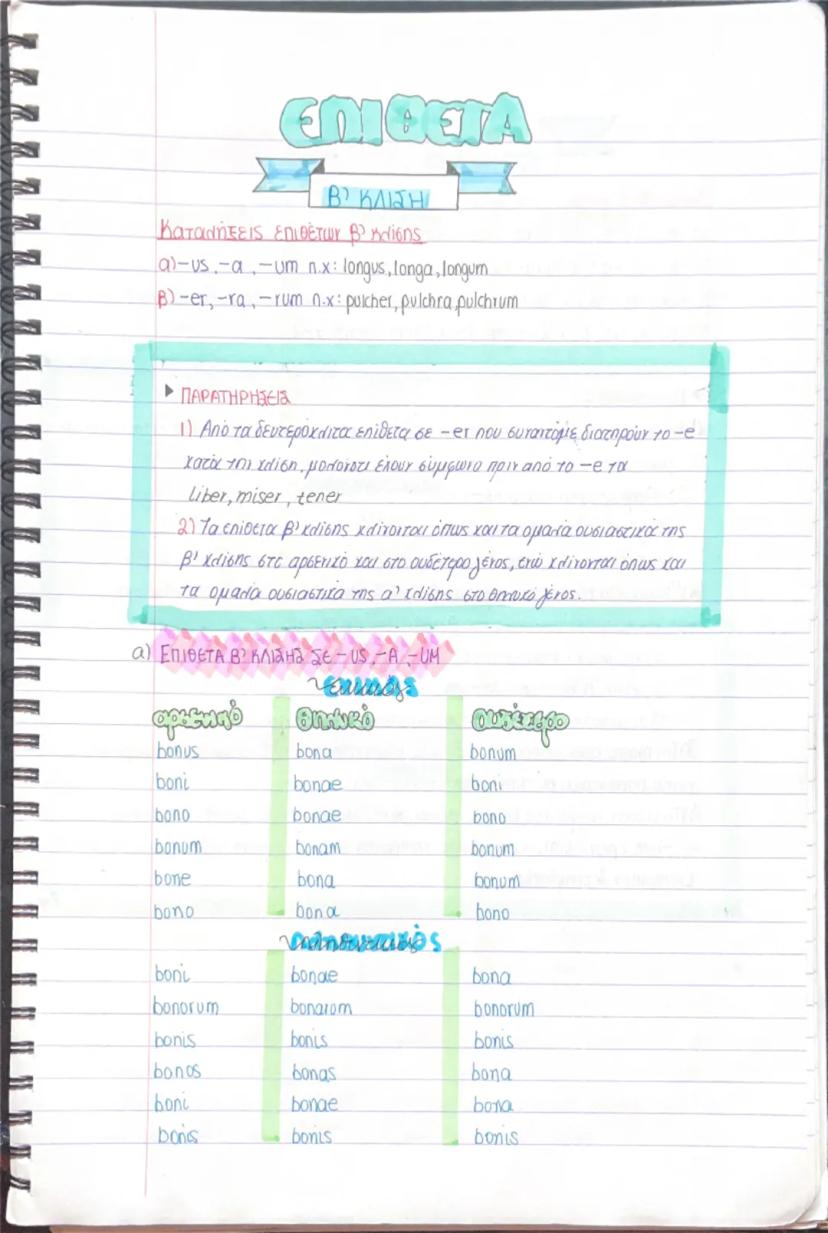 ΕΠΙΘΕΤΑ
Β' ΚΛΙΣΗ
Καταλήξεις επιθέτων β' κλίσης
α) -us, -a, -um π.χ: longus, longa, longum
β) -er, -ra, -rum π.χ: pulcher, pulchra, pulchrum
ΠΑΡΑΤΗΡΗΣΕΙΣ
1) Από τα δευτερόκλιτα επίθετα σε -er που συναντάμε διατηρούν το -e
κατά την κλίση, μολονότι έχουν σύμφωνο πριν από το -e τα
liber, miser, tener
2) Τα επίθετα β' κλίσης κλίνονται όπως και τα ομαλά ουσιαστικά της
β' κλίσης στο αρσενικό και στο ουδέτερο γένος, ενώ κλίνονται όπως και
τα ομαλά ουσιαστικά της α' κλίσης στο θηλυκό γένος.
α) ΕΠΙΘΕΤΑ Β' ΚΛΙΣΗΣ ΣΕ -US, -A, -UM
Ενικός
αρσενικό θηλυκό ουδέτερο
bonus bona bonum
boni bonae boni
bono bonae bono
bonum bonam bonum
bone bona bonum
bono bona bono
Πληθυντικός
boni bonae bona
bonorum bonarum bonorum
bonis bonis bonis
bonos bonas bona
boni bonae bona
bonis bonis bonis